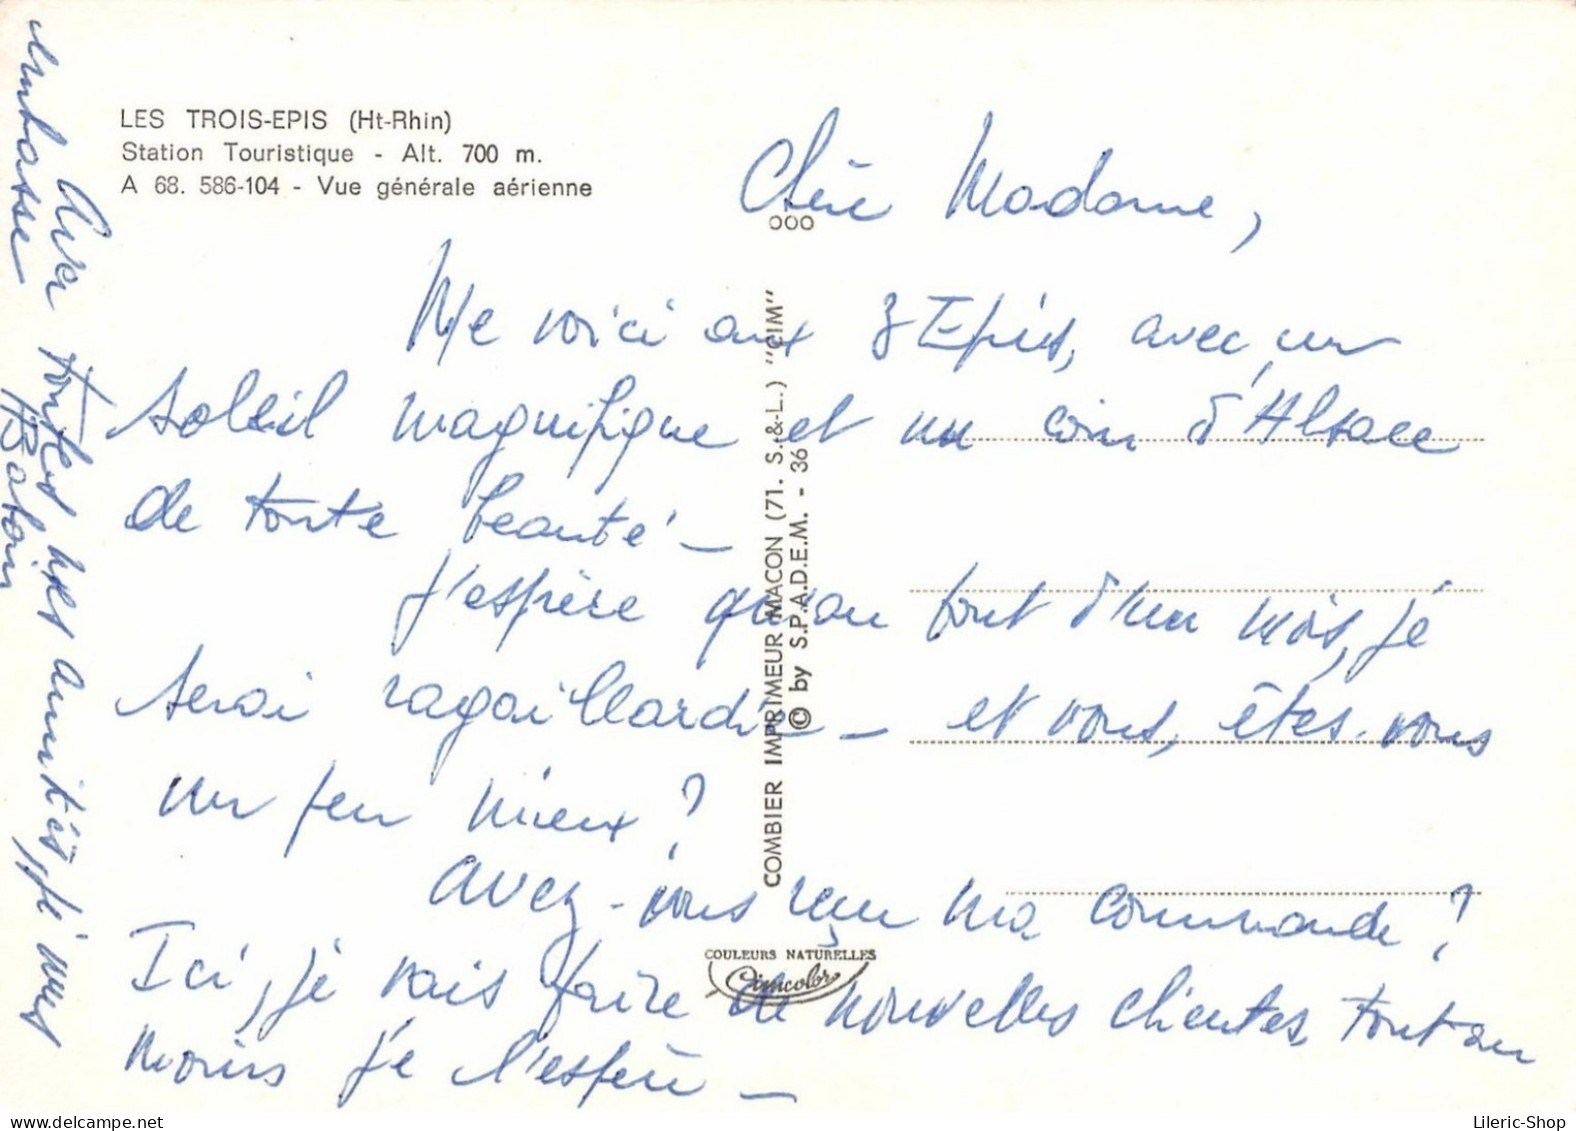 LES TROIS-EPIS (Ht-Rhin)
Station Touristique - Alt. 700 m.
A 68. 586-104 - Vue générale aérienne
ooo
Chère Madame,
Me voici aux 3 Epis, avec un
soleil magnifique et un coin d'Alsace
de toute beauté -
J'espère qu'au bout d'un mois, je
serai ragaillardie - et vous, êtes-vous
un peu mieux ?
avez-vous reçu ma commande ?
Ici, je vais faire de nouvelles clientes, tout au
moins je l'espère -
Avec toutes mes amitiés, je vous
embrasse
COMBIER IMPRIMEUR MACON (71. S.-&-L.) "CIM"
© by S.P.A.D.E.M. - 36
COULEURS NATURELLES
Cimcolor
Lileric-Shop